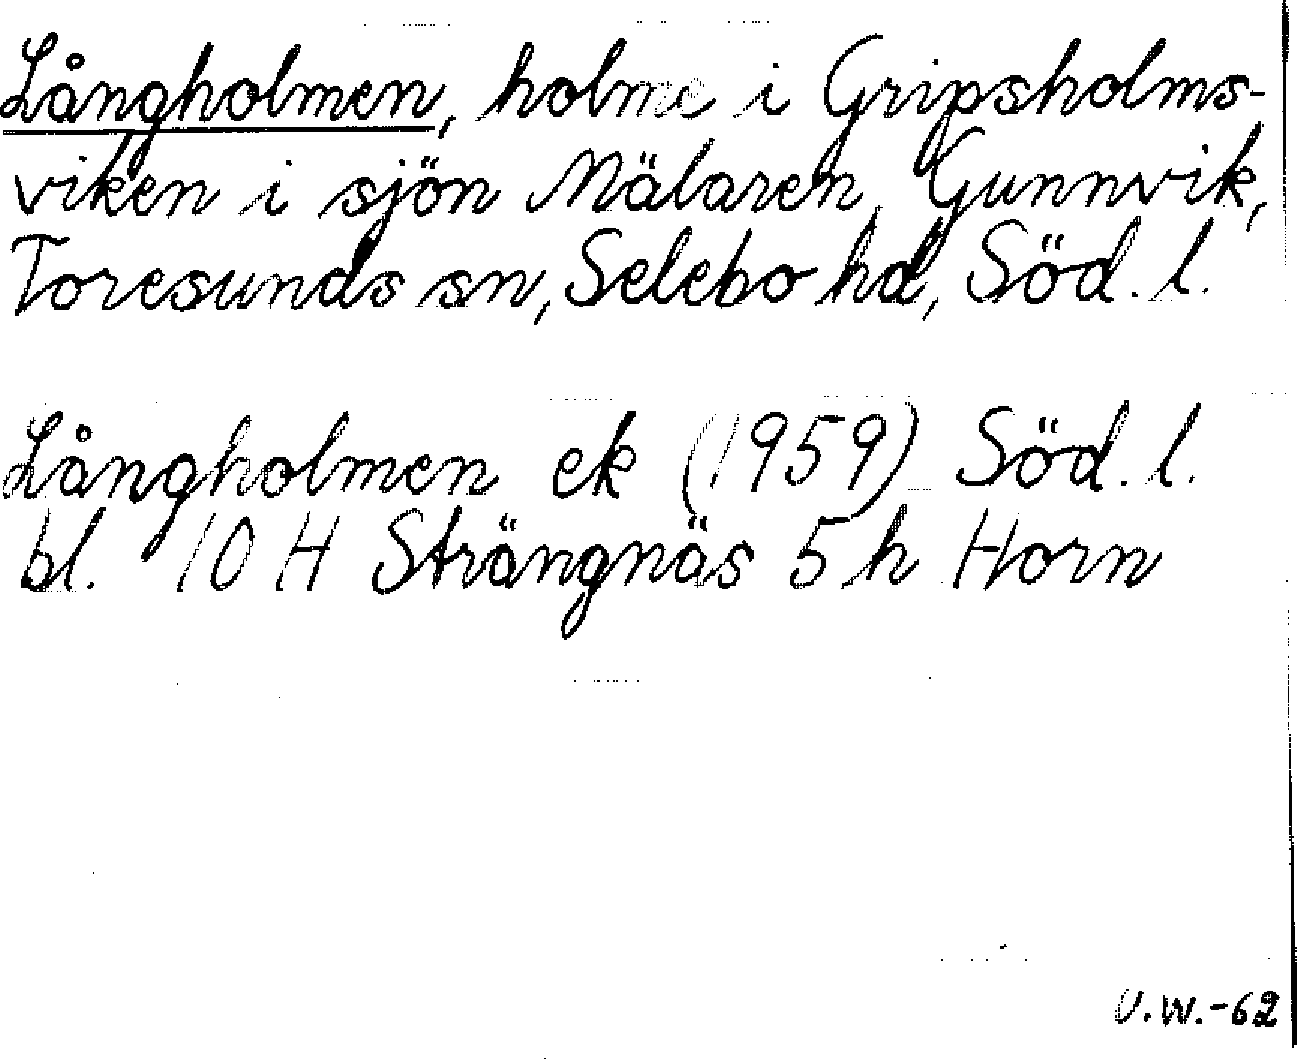 Långholmen, holme i Gripsholms-
viken i sjön Mälaren, Gunnvik,
Toresunds sn, Selebo hd, Söd. l.
Långholmen ek (1959) Söd. l.
bl. 10 H Strängnäs 5 h Horn
U.W.-62